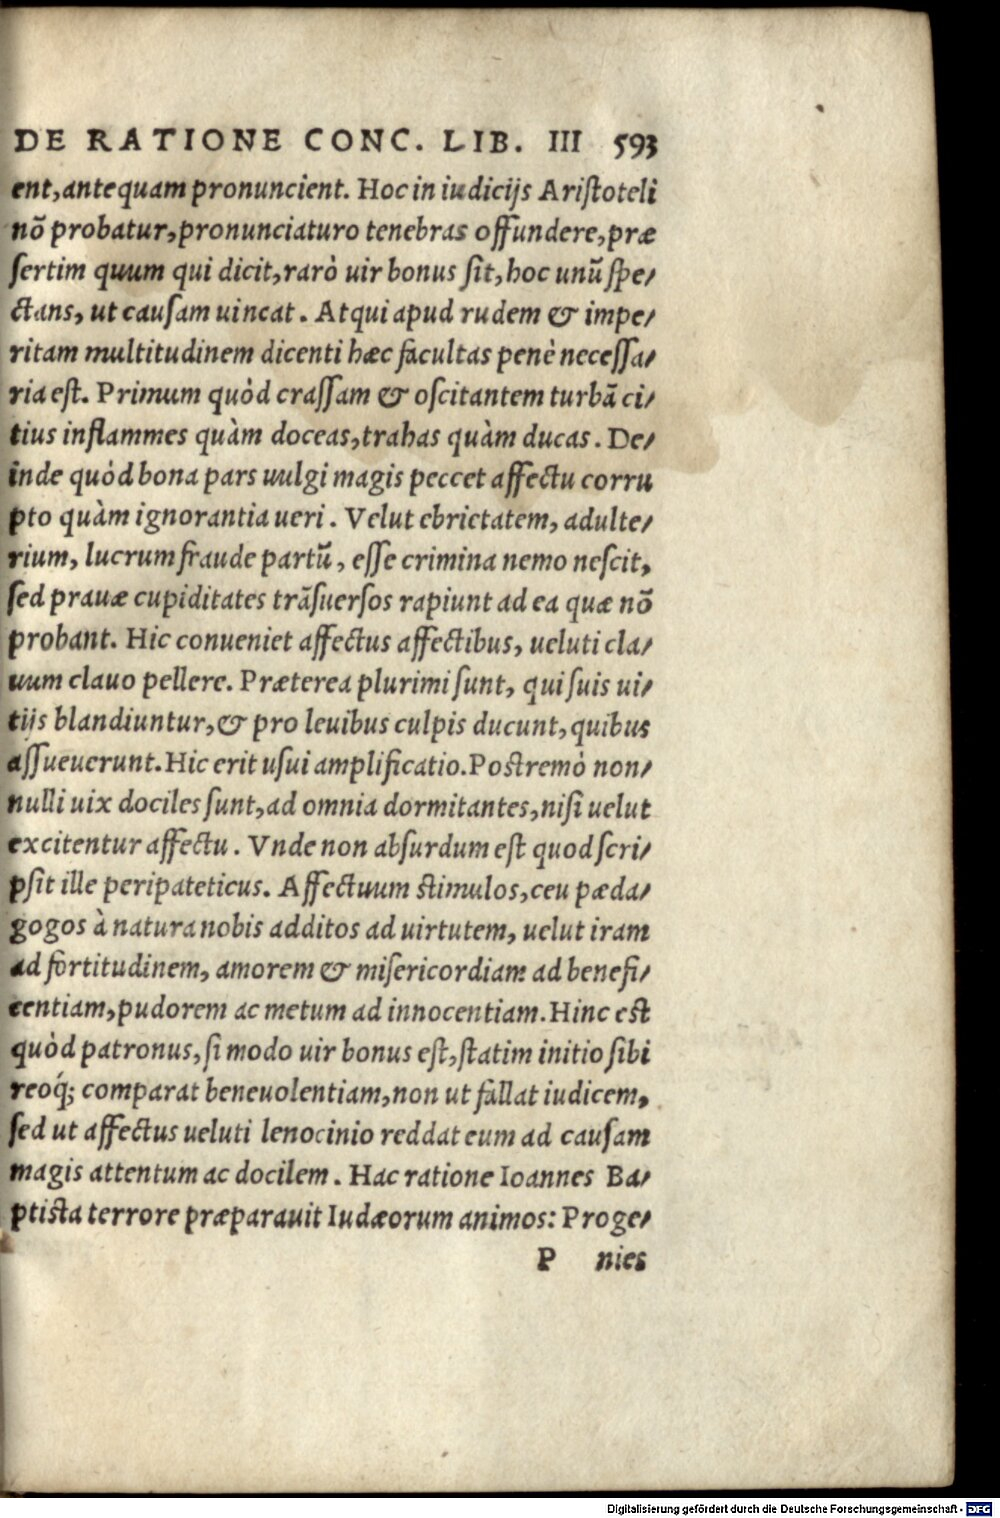 DE RATIONE CONC. LIB. III 593
ent, antequam pronuncient. Hoc in iudicijs Aristoteli
nõ probatur, pronunciaturo tenebras offundere, præ
sertim quum qui dicit, rarò uir bonus sit, hoc unũ spe/
ctans, ut causam uincat. Atqui apud rudem & impe/
ritam multitudinem dicenti hæc facultas penè necessa/
ria est. Primum quòd crassam & oscitantem turbã ci/
tius inflammes quàm doceas, trahas quàm ducas. De/
inde quòd bona pars uulgi magis peccet affectu corru
pto quàm ignorantia ueri. Velut ebrietatem, adulte/
rium, lucrum fraude partũ, esse crimina nemo nescit,
sed prauæ cupiditates trãsuersos rapiunt ad ea quæ nõ
probant. Hic conueniet affectus affectibus, ueluti cla/
uum clauo pellere. Præterea plurimi sunt, qui suis ui/
tijs blandiuntur, & pro leuibus culpis ducunt, quibus
assueuerunt. Hic erit usui amplificatio. Postremò non/
nulli uix dociles sunt, ad omnia dormitantes, nisi uelut
excitentur affectu. Vnde non absurdum est quod scri/
psit ille peripateticus. Affectuum stimulos, ceu pæda/
gogos à natura nobis additos ad uirtutem, uelut iram
ad fortitudinem, amorem & misericordiam ad benefi/
centiam, pudorem ac metum ad innocentiam. Hinc est
quòd patronus, si modo uir bonus est, statim initio sibi
reoq́; comparat beneuolentiam, non ut fallat iudicem,
sed ut affectus ueluti lenocinio reddat eum ad causam
magis attentum ac docilem. Hac ratione Ioannes Ba/
ptista terrore præparauit Iudæorum animos: Proge/
P nies
Digitalisierung gefördert durch die Deutsche Forschungsgemeinschaft - DFG